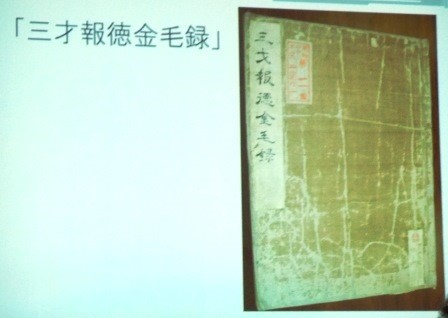 「三才報徳金毛録」
三才報徳金毛録